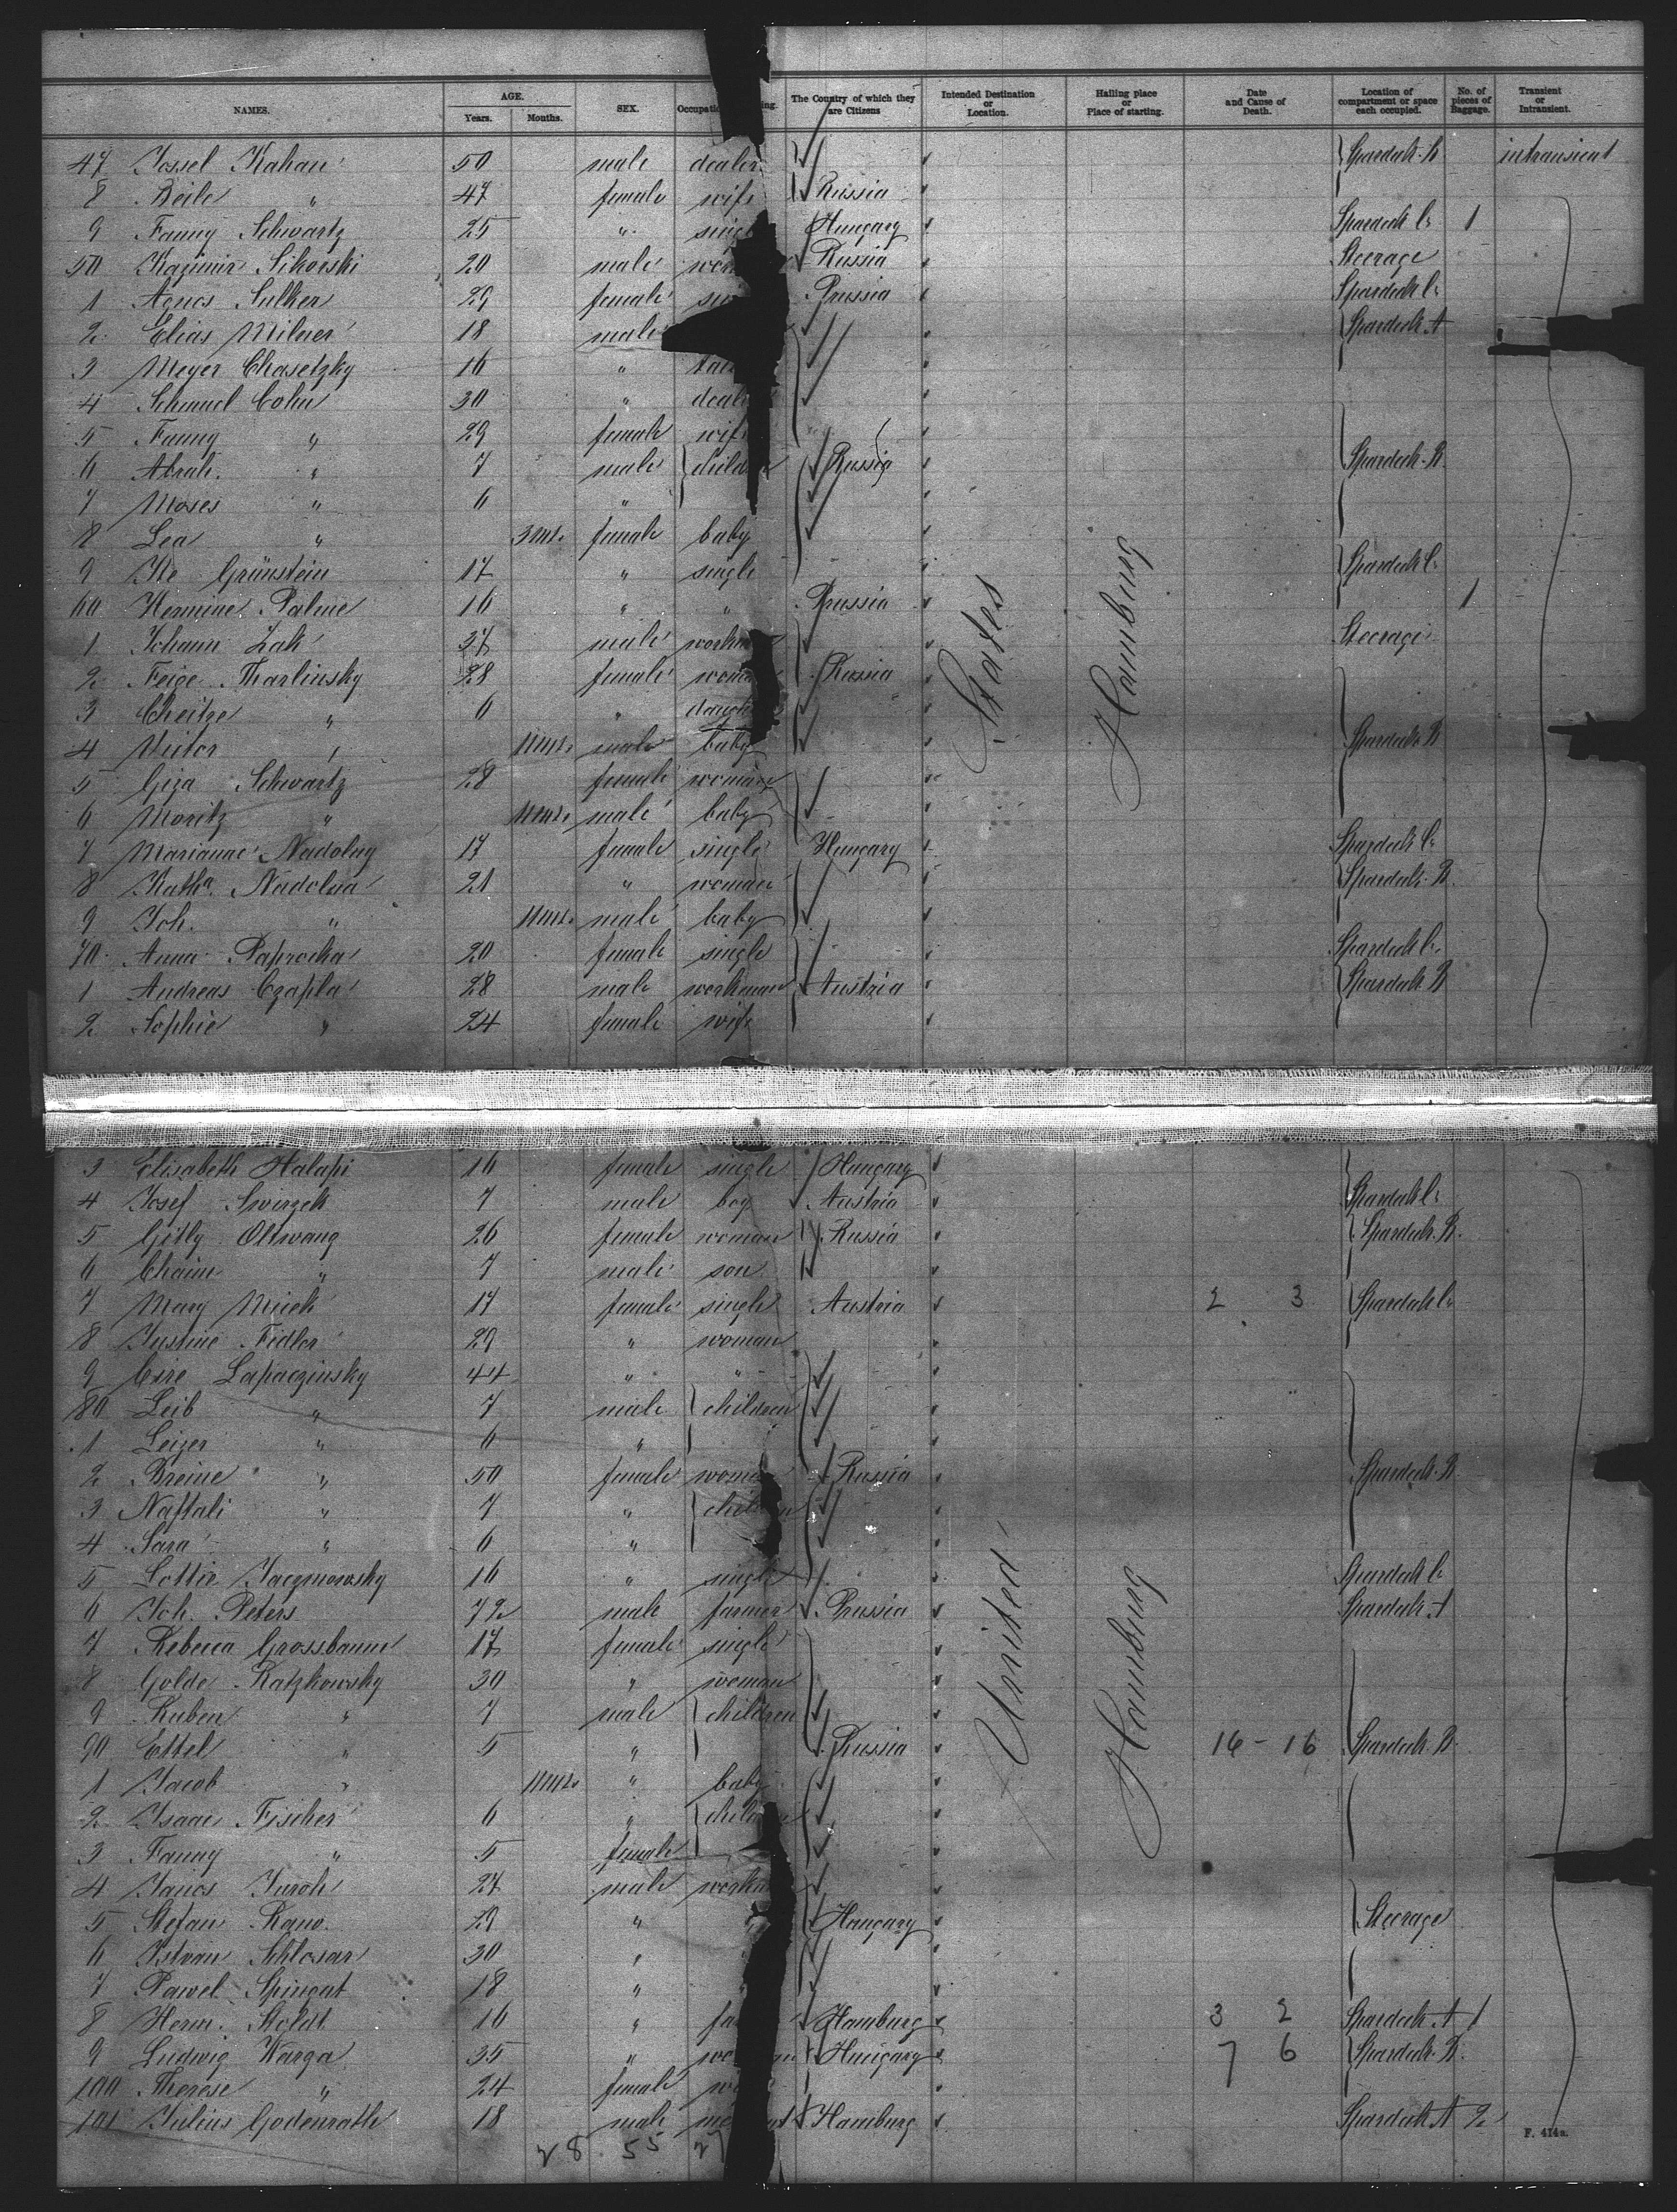 NAMES. AGE. Years. Months. SEX. The Country of which they are Citizens Intended Destination or Location. Hailing place or Place of starting. Date and Cause of Death. Location of compartment or space each occupied. No. of pieces of Baggage. Transient or Intransient.
47 Jossel Kahan 50 male dealer Spardeck B intransient
8 Beile " 47 female wife Russia
9 Fanny Schwartz 25 " single Hungary Spardeck C 1
50 Kazimir Sikorski 20 male Russia Steerage
1 Agnes Sulker 29 female Prussia Spardeck C
2 Elias Milner 18 male Spardeck A
3 Meyer Chasetzky 16 "
4 Schmuel Cohn 30 " dealer
5 Fanny " 29 female wife
6 Abrah. " 7 male children Russia Spardeck B
7 Moses " 6 "
8 Lea " 3 mts. female baby
9 Ite Grünstein 17 " single Spardeck C
60 Hermine Palme 16 " " Prussia 1
1 Johann Zak 37 male workman Steerage
2 Feige Karlinsky 28 female woman Russia
3 Cheitze " 6 " daught
4 " 11 mts. male baby Spardeck B
5 Giza Schwartz 28 female woman
6 Moritz " 11 mts. male baby
7 Marianne Nadolny 17 female single Hungary Spardeck C
8 Kath. Nadolna 21 " woman Spardeck B
9 Joh. " 11 mts. male baby
70 Anna Paprocka 20 female single Spardeck C
1 Andreas Czapla 28 male workman Austria Spardeck B
2 Sophie " 24 female wife
States Hamburg
3 Elisabeth Halapi 16 female single Hungary
4 Josef Swirzek 7 male boy Austria Spardeck C
5 Gitly Ollwang 26 female woman Russia Spardeck B.
6 Chaim " 7 male son
7 Mary Mick 17 female single Austria 2 3 Spardeck C
8 Justine Fidler 29 " woman
9 Cire Lapaczinsky 44 " "
80 Leib " 7 male children
1 Leizer " 6 "
2 Breine " 50 female woman Russia Spardeck B
3 Naftali " 7 " children
4 Sara " 6 "
5 Lottie Jaczmowsky 16 " single Spardeck C
6 Joh. Peters 72 male farmer Prussia Spardeck A
7 Rebecca Grossbaum 17 female single
8 Golde Ratzkowsky 30 " woman
9 Ruben " 7 male children
90 Ettel " 5 " Russia 16 - 16 Spardeck B
1 Jacob " 11 mts. " baby
2 Isaac Fischer 6 " children
3 Fanny " 5 female
4 Janos Juroh 27 male workm
5 Stefan Kano 29 " Hungary Steerage
6 Istvan Schlosar 30 "
7 Pawel Spingat 18 "
8 Herm. Stoldt 16 " Hamburg 3 2 Spardeck A 1
9 Ludwig Warga 35 " Hungary 7 6 Spardeck B.
100 Therese " 24 female
101 Julius Godenrath 18 male Hamburg Spardeck A 2
United Hamburg
28 55 27
F. 414a.